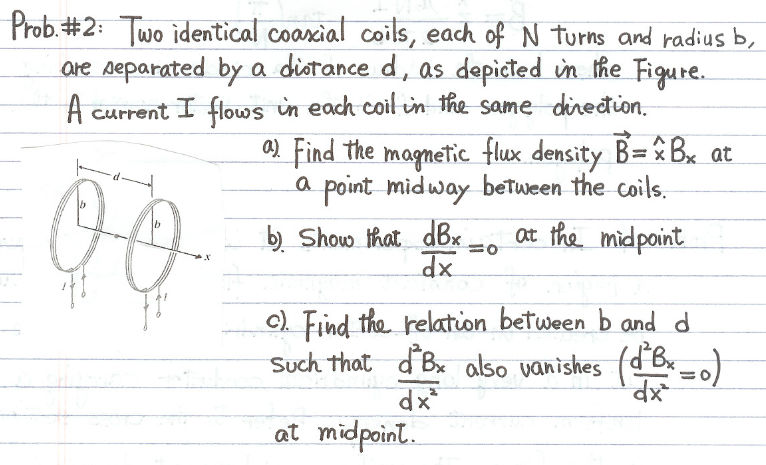 Prob.#2: Two identical coaxial coils, each of N turns and radius b,
are separated by a distance d, as depicted in the Figure.
A current I flows in each coil in the same direction.
a). Find the magnetic flux density B⃗ = x̂ Bx at
a point midway between the coils.
b). Show that dBx/dx = 0 at the midpoint
c). Find the relation between b and d
such that d²Bx/dx² also vanishes (d²Bx/dx² = 0)
at midpoint.
d
b
b
x
I
I